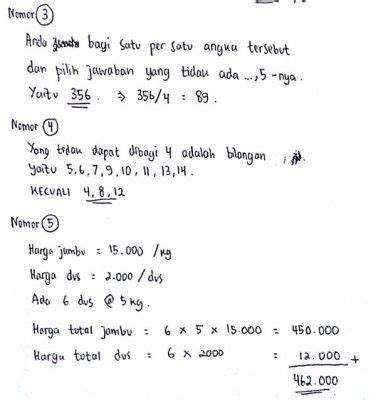 Nomor ③
Anda bagi satu per satu angka tersebut
dan pilih jawaban yang tidak ada ...,5 -nya.
Yaitu 356. ⇒ 356/4 = 89.
Nomor ④
Yang tidak dapat dibagi 4 adalah bilangan
yaitu 5,6,7,9,10,11,13,14.
KECUALI 4,8,12
Nomor ⑤
Harga jambu = 15.000 /kg
Harga dus = 2.000 /dus
Ada 6 dus @ 5 kg.
Harga total jambu = 6 x 5 x 15.000 = 450.000
Harga total dus = 6 x 2000 = 12.000 +
462.000